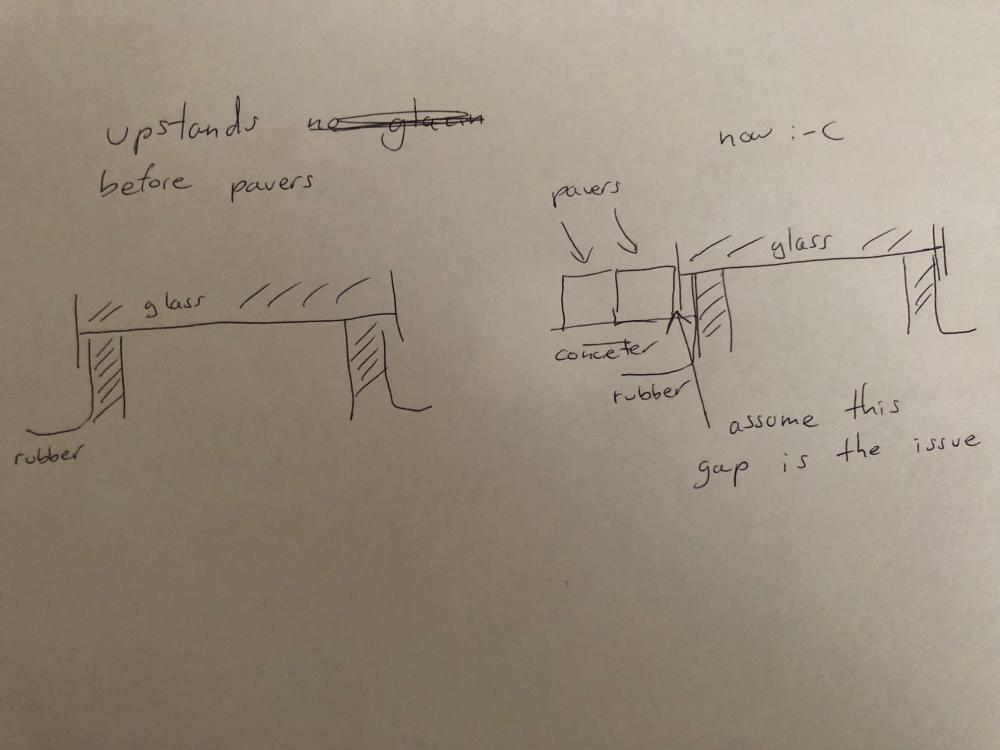 upstands no glazin
before pavers
glass
rubber
now :-(
pavers
glass
conceter
rubber
assume this
gap is the issue